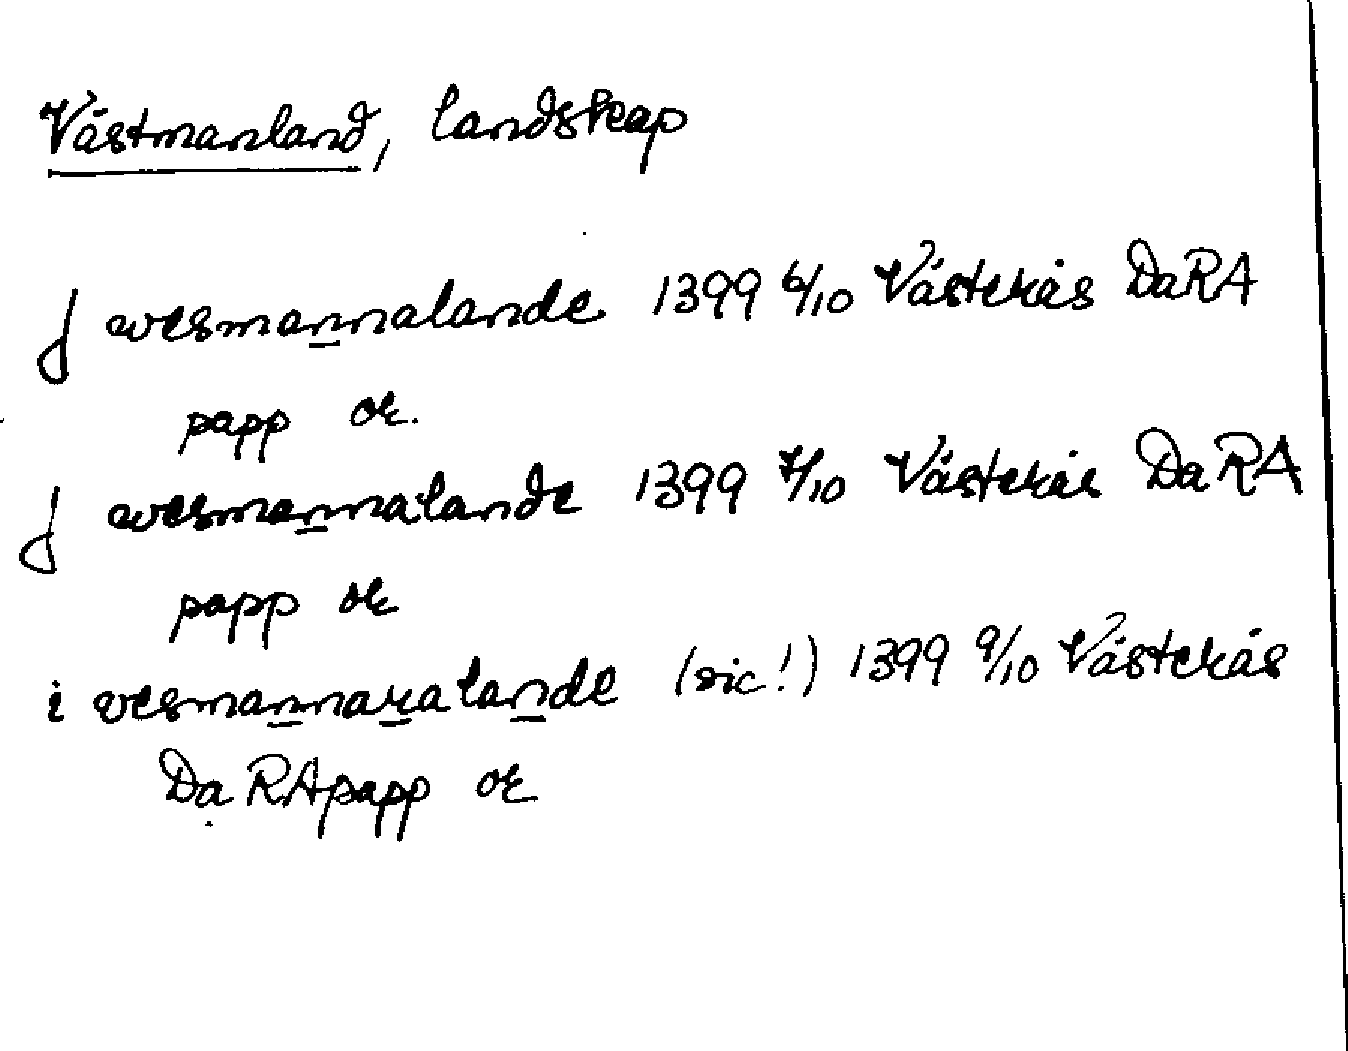 Västmanland, landskap
J wesmannalande 1399 6/10 Västerås DaRA
papp or.
J wesmannalande 1399 7/10 Västerås DaRA
papp or
i vesmannaralande (sic!) 1399 9/10 Västerås
DaRApapp or